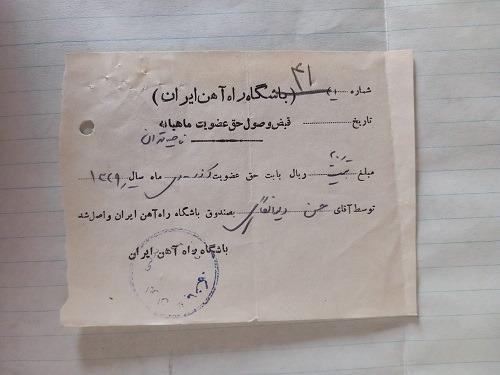 شماره ۴۱ (باشگاه راه آهن ایران)
تاریخ قبض وصول حق عضویت ماهیانه
ناحیه تهران
۲۰
مبلغ بیست ریال بابت حق عضویت ماه سال ۱۳۲۹
توسط آقای حسن بصندوق باشگاه راه آهن ایران واصل شد
باشگاه راه آهن ایران